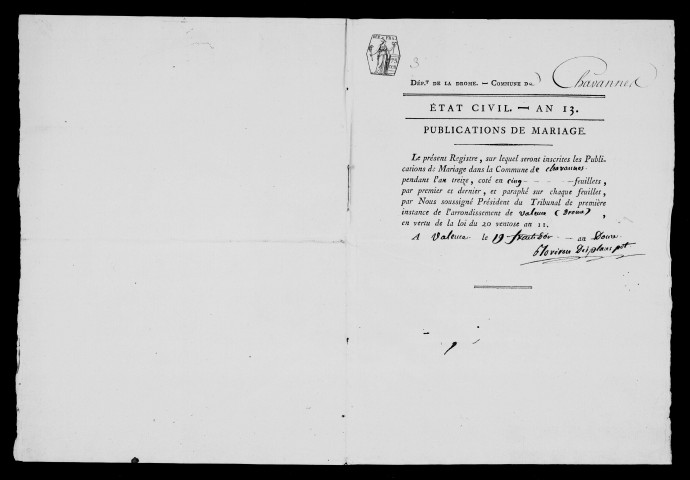 3
DÉP.T DE LA DROME. — COMMUNE D Chavannes
ÉTAT CIVIL. — AN 13.
PUBLICATIONS DE MARIAGE.
Le présent Registre, sur lequel seront inscrites les Publi-
cations de Mariage dans la Commune de chavannes
pendant l'an treize, coté en cinq feuillets,
par premier et dernier, et paraphé sur chaque feuillet,
par Nous soussigné Président du Tribunal de première
instance de l'arrondissement de Valence (Drome),
en vertu de la loi du 20 ventose an 11.
A Valence le 19 fructidor an Douze